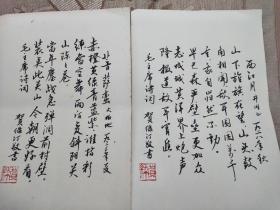 菩萨蛮 大柏地 一九三三年夏
赤橙黄绿青蓝紫 谁持彩
练当空舞 雨后复斜阳 关
山阵阵苍
当年鏖战急 弹洞前村壁
装点此关山 今朝更好看
毛主席诗词 贺敬书
西江月 井冈山 一九二八年秋
山下旌旗在望 山头鼓
角相闻 敌军围困万千
重 我自岿然不动
早已森严壁垒 更加众
志成城 黄洋界上炮声
隆 报道敌军宵遁
毛主席诗词 贺敬书